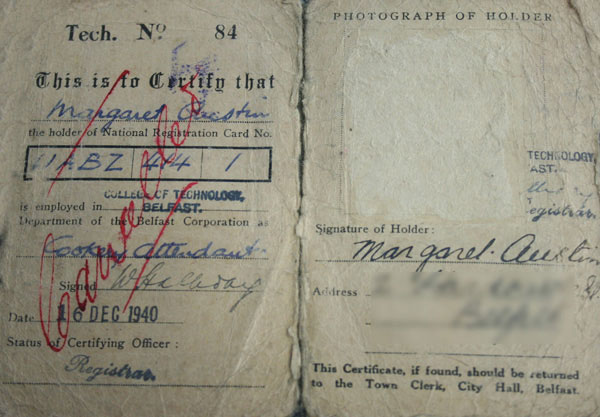 Tech. Nº 84
This is to Certify that
Margaret Austin
the holder of National Registration Card No.
UABZ 44 1
COLLEGE OF TECHNOLOGY,
is employed in BELFAST.
Department of the Belfast Corporation as
Cookery Attendant.
Signed
Date 16 DEC 1940
Status of Certifying Officer :
Registrar.
Cancelled
PHOTOGRAPH OF HOLDER
TECHNOLOGY,
AST.
egistrar.
Signature of Holder :
Margaret Austin
Address
This Certificate, if found, should be returned
to the Town Clerk, City Hall, Belfast.